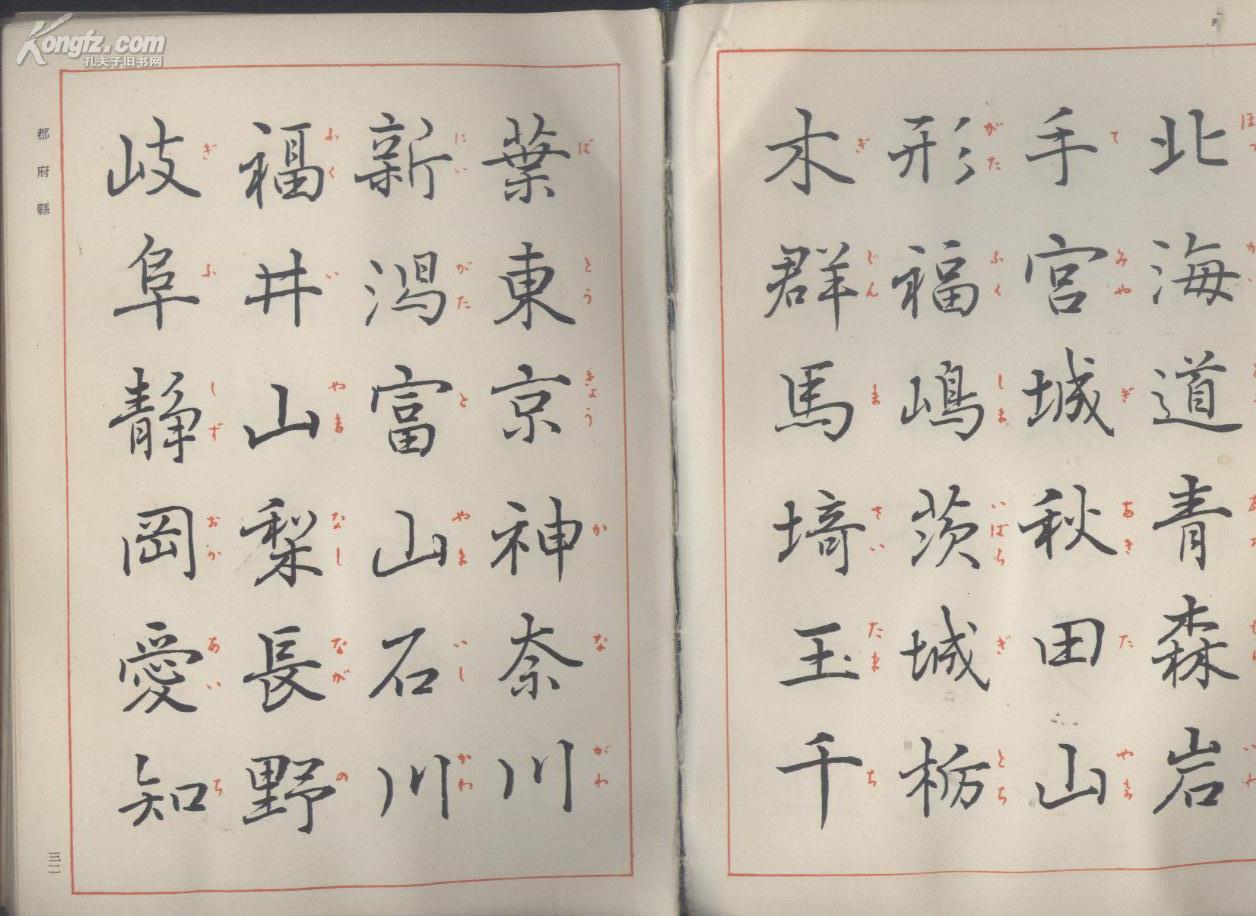 北海道青森岩
手宮城秋田山
て みや ぎ あき た やま
形福嶋茨城栃
がた ふく しま いばら ぎ とち
木群馬埼玉千
ぎ ぐん ま さい たま ち
葉東京神奈川
ば とう きょう か な がわ
新潟富山石川
にい がた と やま いし かわ
福井山梨長野
ふく い やま なし なが の
岐阜静岡愛知
ぎ ふ しず おか あい ち
都府縣
三二
Kongfz.com
孔夫子旧书网